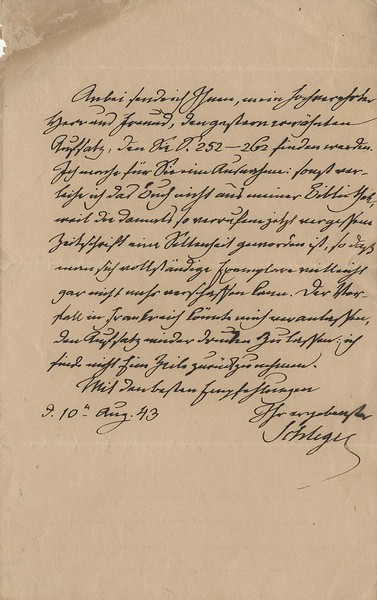 Anbei sende ich Ihnen, mein hochverehrter
Herr und Freund, den gestern erwähnten
Aufsatz, den Sie S. 252–262 finden werden.
Ich mache für Sie eine Ausnahme: sonst ver-
leihe ich das Buch nicht aus meiner Bibliothek,
weil die damals so verrufene jetzt vergessene
Zeitschrift eine Seltenheit geworden ist, so daß
man sich vollständige Exemplare vielleicht
gar nicht mehr verschaffen kann. Der Vor-
fall in Frankreich könnte mich veranlassen,
den Aufsatz wieder drucken zu lassen; ich
finde nicht Eine Zeile zurückzunehmen.
Mit den besten Empfehlungen
d. 10n Aug. 43 Ihr ergebenster
Schlegel